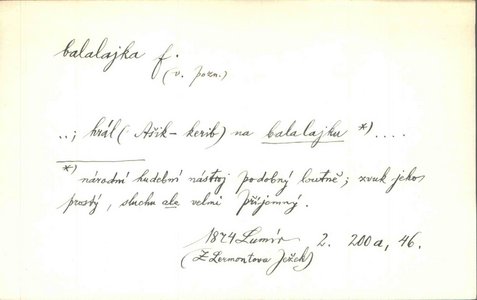 balalajka f.
(v. pozn.)
..; hrál (Ašik-kerib) na balalajku *) ....
*) národní hudební nástroj podobný loutně; zvuk jeho
prostý, sluchu ale velmi příjemný.
1874 Lumír 2. 200a, 46.
(Z Lermontova Ježek)